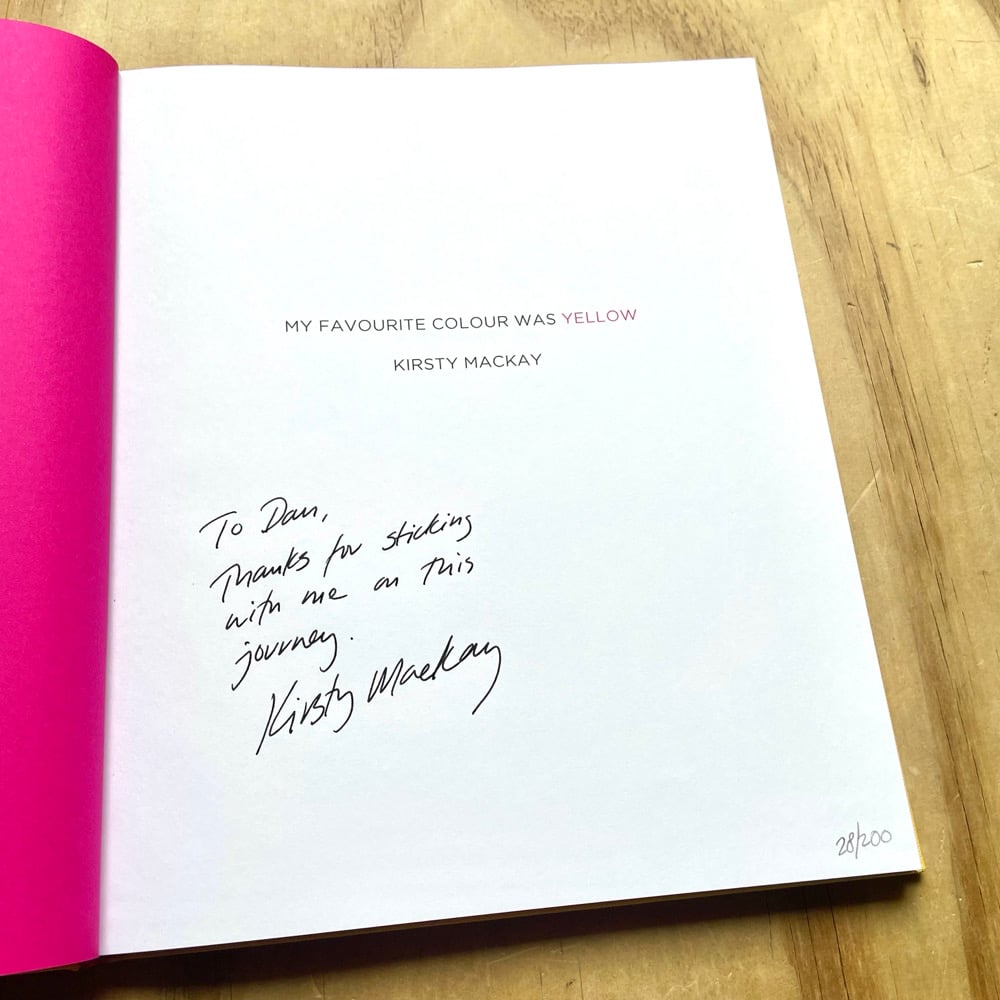 MY FAVOURITE COLOUR WAS YELLOW
KIRSTY MACKAY
To Dan,
Thanks for sticking
with me on this
journey.
Kirsty Mackay
28/200